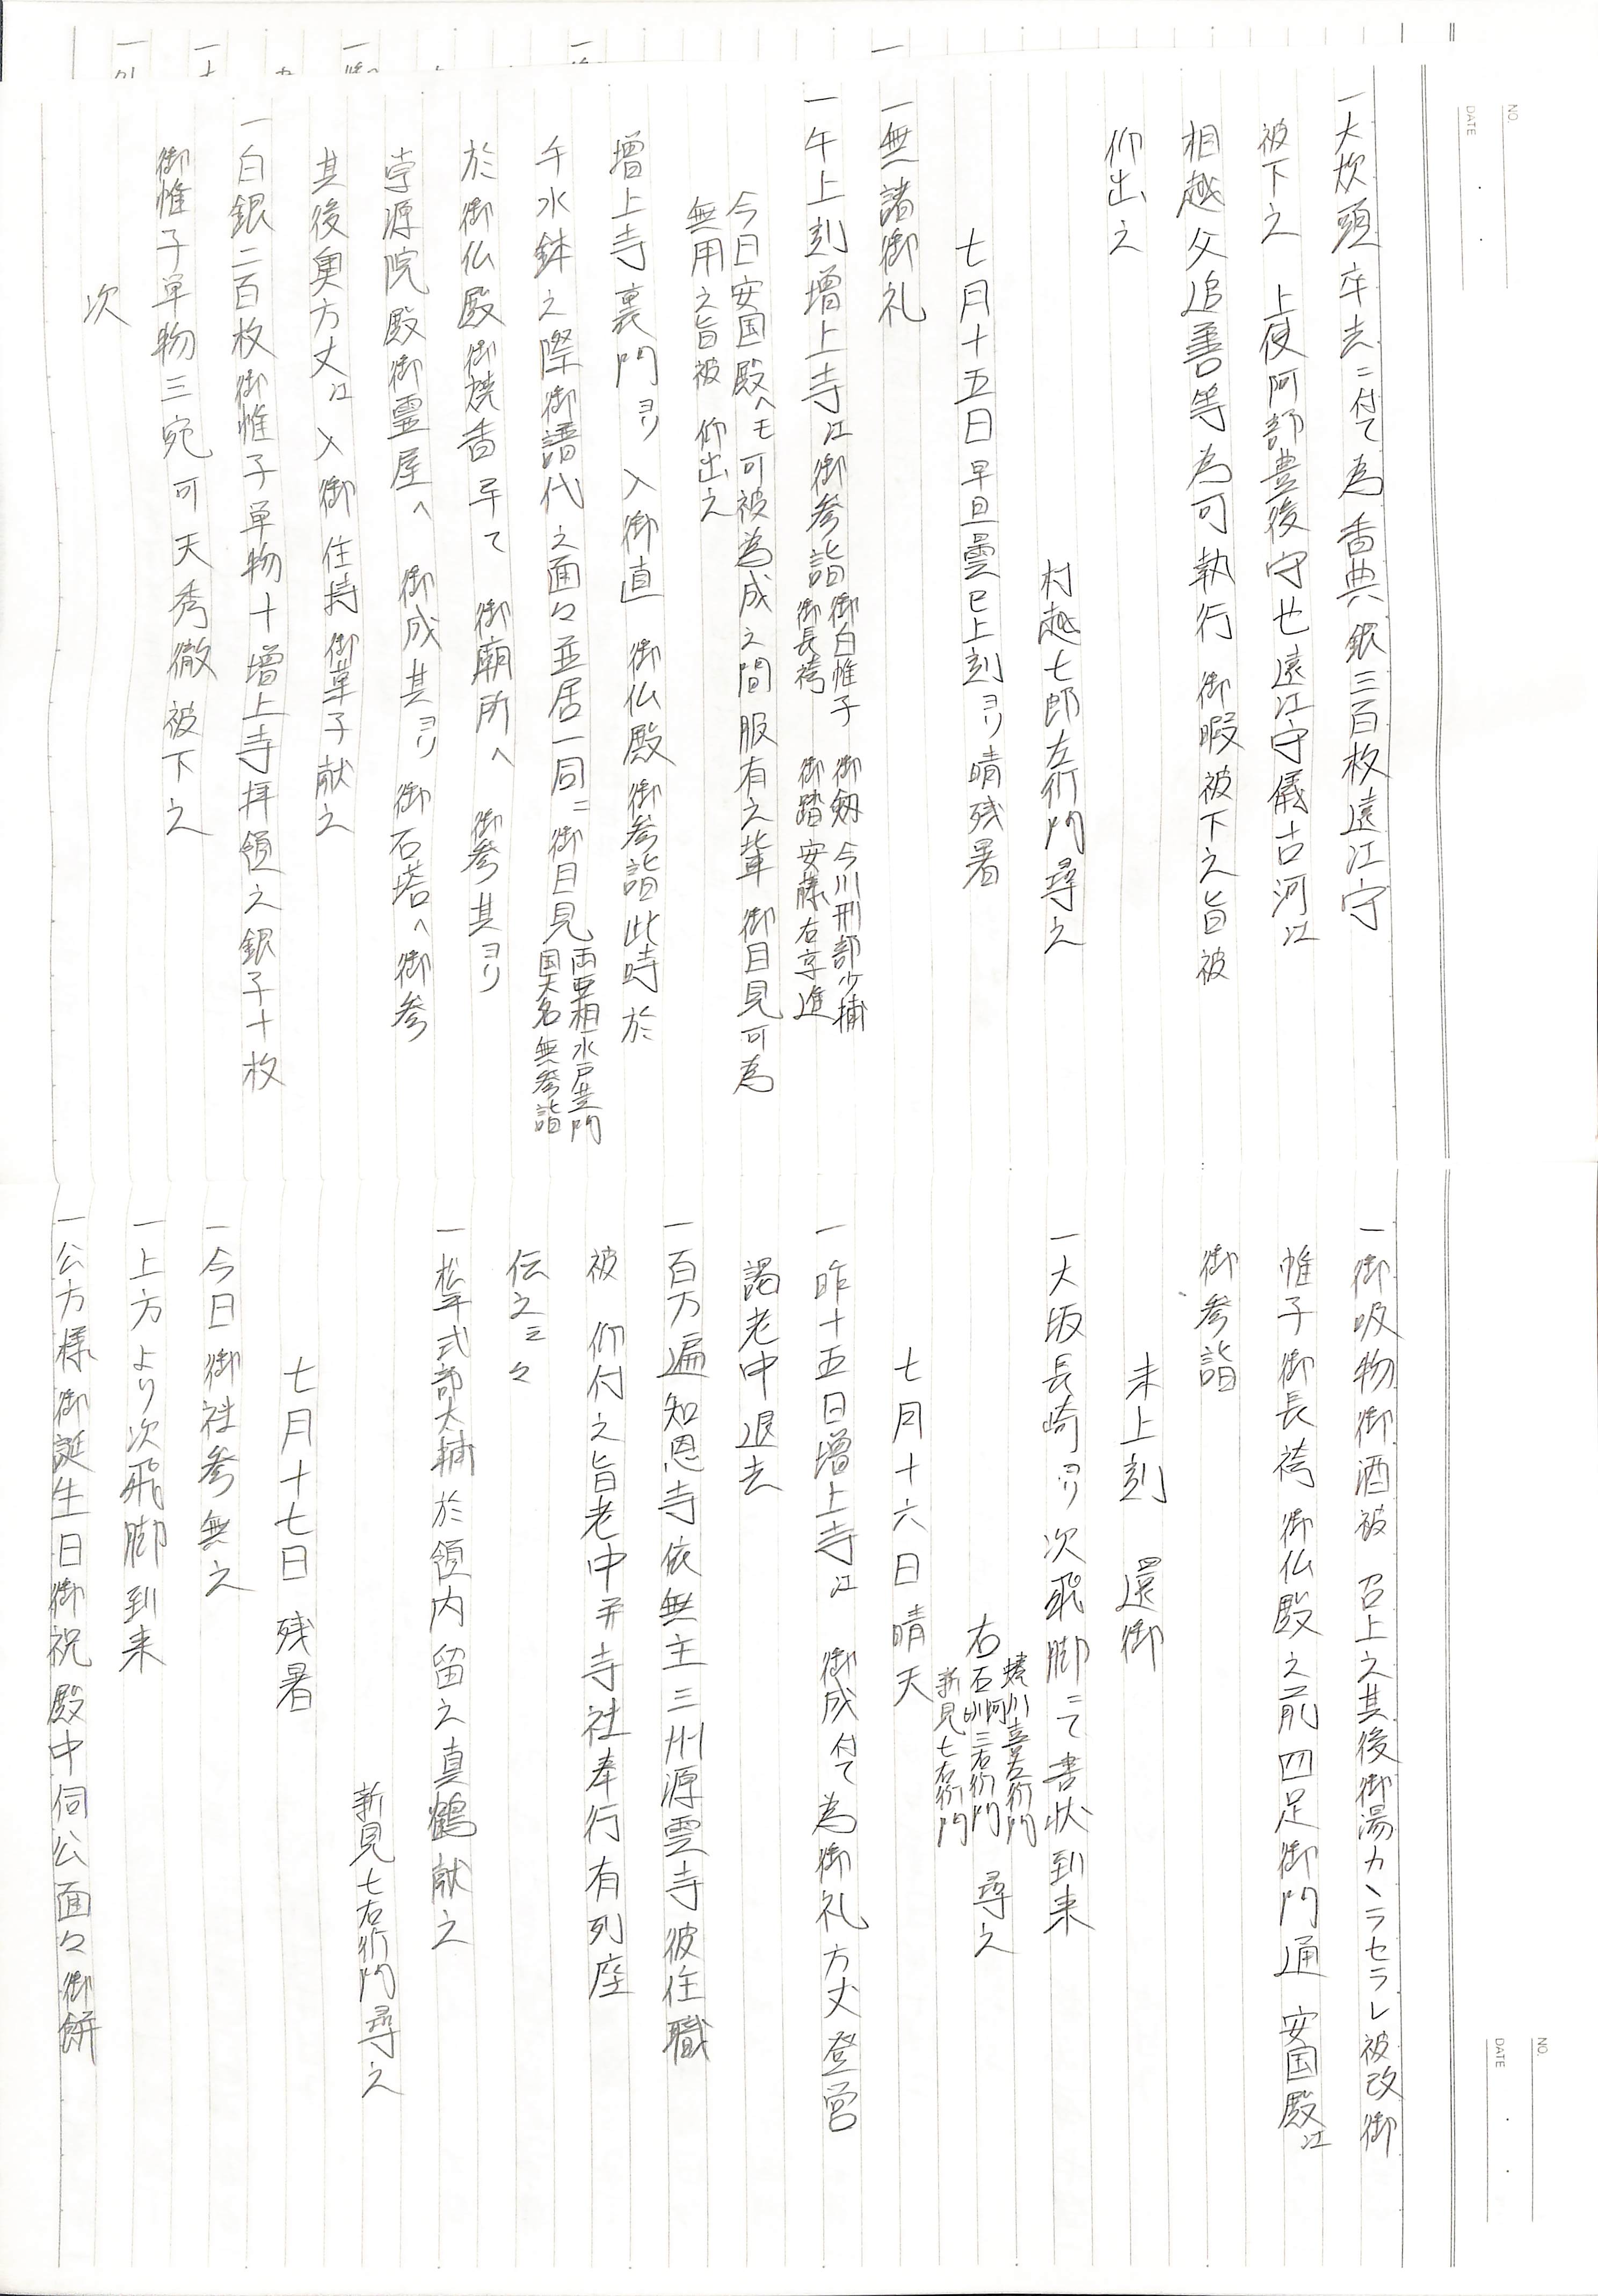 一大炊頭卒去ニ付て為香典銀三百枚遠江守
被下之　上使阿部豊後守也遠江守儀古河江
相越父追善等為可執行　御暇被下之旨被
仰出之
村越七郎左衛門尋之
七月十五日早旦曇巳上刻ヨリ晴残暑
一無諸御礼
一午上刻増上寺江御参詣
御白帷子　御剱　今川刑部少捕
御長袴　御踏　安藤右京進
今日安国殿ヘモ可被為成之間服有之輩　御目見可為
無用之旨被　仰出之
増上寺裏門ヨリ　入御直　御仏殿　御参詣此時於
午水鉢之際御譜代之面々並居一同ニ御目見
両宰相水戸黄門
国大名無参詣
於御仏殿御焼香畢て　御廟所ヘ　御参其ヨリ
崇源院殿御霊屋ヘ　御成其ヨリ　御石塔ヘ御参
其後奥方丈江　入御住持　御菓子献之
一白銀二百枚御帷子単物十増上寺拝領之銀子十枚
御帷子単物三宛可天秀徹被下之
次
一御吸物御酒被　召上之其後御湯カヽラセラレ被改御
帷子御長袴　御仏殿之前四足御門通　安国殿江
御参詣
未上刻　還御
一大坂長崎ヨリ次飛脚ニて書状到来
蜷川喜左衛門
右石川三右衛門　尋之
新見七右衛門
七月十六日晴天
一昨十五日増上寺江　御成付て為御礼方丈登営
謁老中退去
一百万遍知恩寺依無主三州源雲寺彼住職
被　仰付之旨老中并寺社奉行有列座
伝之云々
一松平式部大輔於領内留之真鶴献之
新見七右衛門尋之
七月十七日　残暑
一今日御社参無之
一上方より次飛脚到来
一公方様御誕生日御祝殿中伺公面々御餅